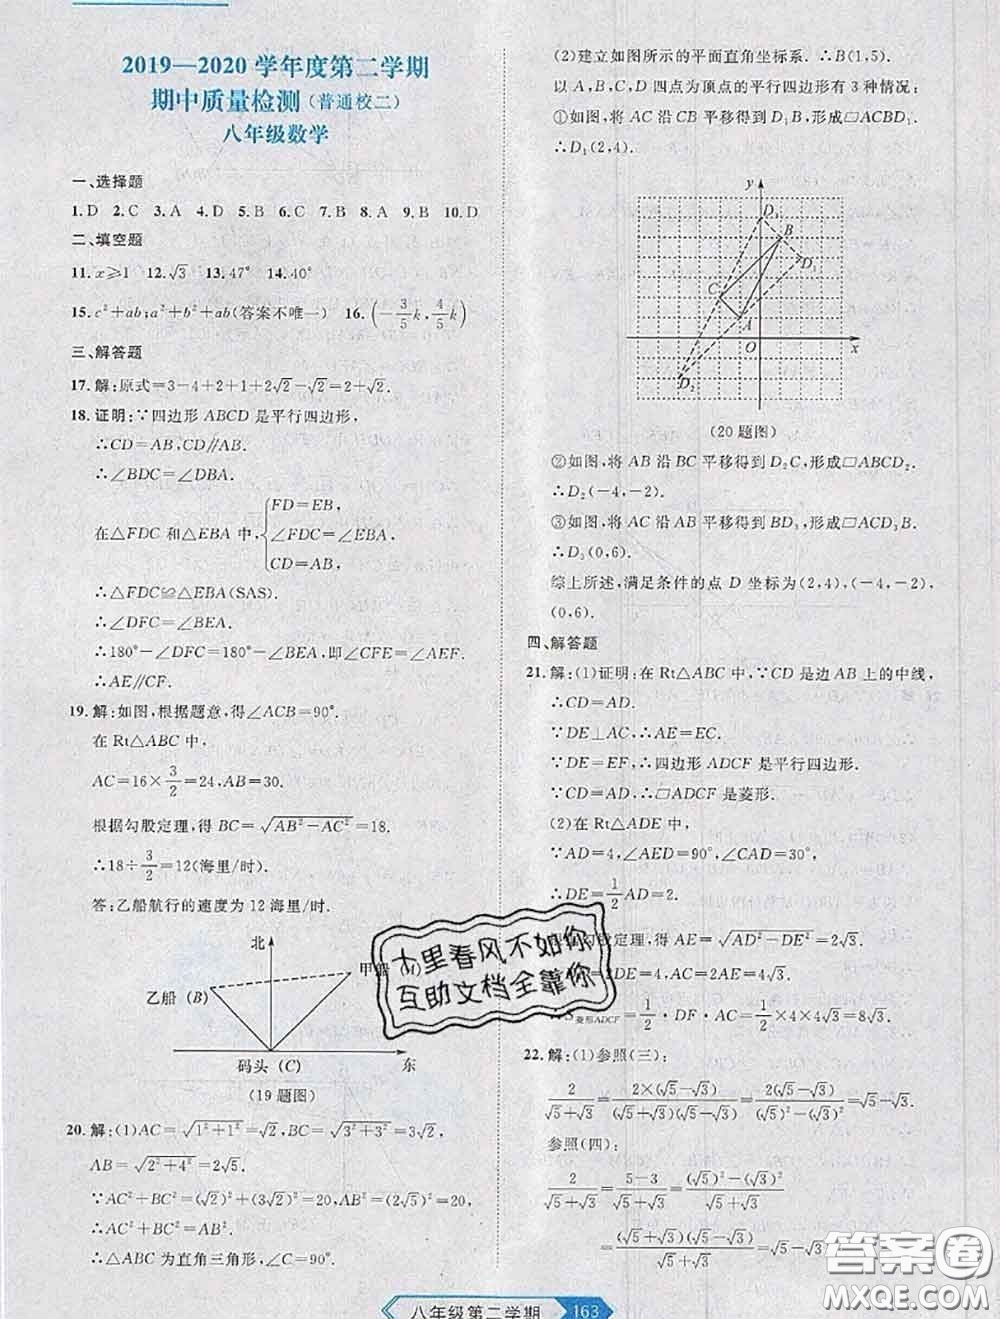 2019—2020 学年度第二学期
期中质量检测(普通校二)
八年级数学
一、选择题
1. D 2. C 3. A 4. D 5. B 6. C 7. B 8. A 9. B 10. D
二、填空题
11. x≥1 12. √3 13. 47° 14. 40°
15. c²+ab;a²+b²+ab(答案不唯一) 16. (-3/5k,4/5k)
三、解答题
17. 解:原式=3-4+2+1+2√2-√2=2+√2.
18. 证明:∵四边形 ABCD 是平行四边形,
∴CD=AB,CD∥AB.
∴∠BDC=∠DBA.
在△FDC 和△EBA 中,{FD=EB,
∠FDC=∠EBA,
CD=AB,
∴△FDC≌△EBA(SAS).
∴∠DFC=∠BEA.
∴180°-∠DFC=180°-∠BEA,即∠CFE=∠AEF.
∴AE∥CF.
19. 解:如图,根据题意,得∠ACB=90°.
在 Rt△ABC 中,
AC=16×3/2=24,AB=30.
根据勾股定理,得 BC=√(AB²-AC²)=18.
∴18÷3/2=12(海里/时).
答:乙船航行的速度为 12 海里/时.
北
甲
乙船 (B)
码头 (C) 东
(19 题图)
20. 解:(1)AC=√(1²+1²)=√2,BC=√(3²+3²)=3√2,
AB=√(2²+4²)=2√5.
∵AC²+BC²=(√2)²+(3√2)²=20,AB²=(2√5)²=20,
∴AC²+BC²=AB².
∴△ABC 为直角三角形,∠C=90°.
(2)建立如图所示的平面直角坐标系. ∴B(1,5).
以 A,B,C,D 四点为顶点的平行四边形有 3 种情况:
①如图,将 AC 沿 CB 平移得到 D₁B,形成□ACBD₁.
∴D₁(2,4).
y
D₃
B
D₁
C
A
O x
D₂
(20 题图)
②如图,将 AB 沿 BC 平移得到 D₂C,形成□ABCD₂.
∴D₂(-4,-2).
③如图,将 AC 沿 AB 平移得到 BD₃,形成□ACD₃B.
∴D₃(0,6).
综上所述,满足条件的点 D 坐标为(2,4),(-4,-2),
(0,6).
四、解答题
21. 解:(1)证明:在 Rt△ABC 中,∵CD 是边 AB 上的中线,
∴CD=AD.
∵DE⊥AC,∴AE=EC.
∵DE=EF,∴四边形 ADCF 是平行四边形.
∵CD=AD,∴□ADCF 是菱形.
(2)在 Rt△ADE 中,
∵AD=4,∠AED=90°,∠CAD=30°,
∴DE=1/2AD=2.
股定理,得 AE=√(AD²-DE²)=2√3.
菱形ADCF=1/2·DF·AC=1/2×4×4√3=8√3.
22. 解:(1)参照(三):
2/(√5+√3)=2×(√5-√3)/((√5+√3)(√5-√3))=2(√5-√3)/((√5)²-(√3)²)=√5-√3.
参照(四):
2/(√5+√3)=(5-3)/(√5+√3)=((√5)²-(√3)²)/(√5+√3)
=(√5+√3)(√5-√3)/(√5+√3)=√5-√3.
八年级第二学期 163
里春风不如你
互助文档全靠你
答案圈
MXQE.COM